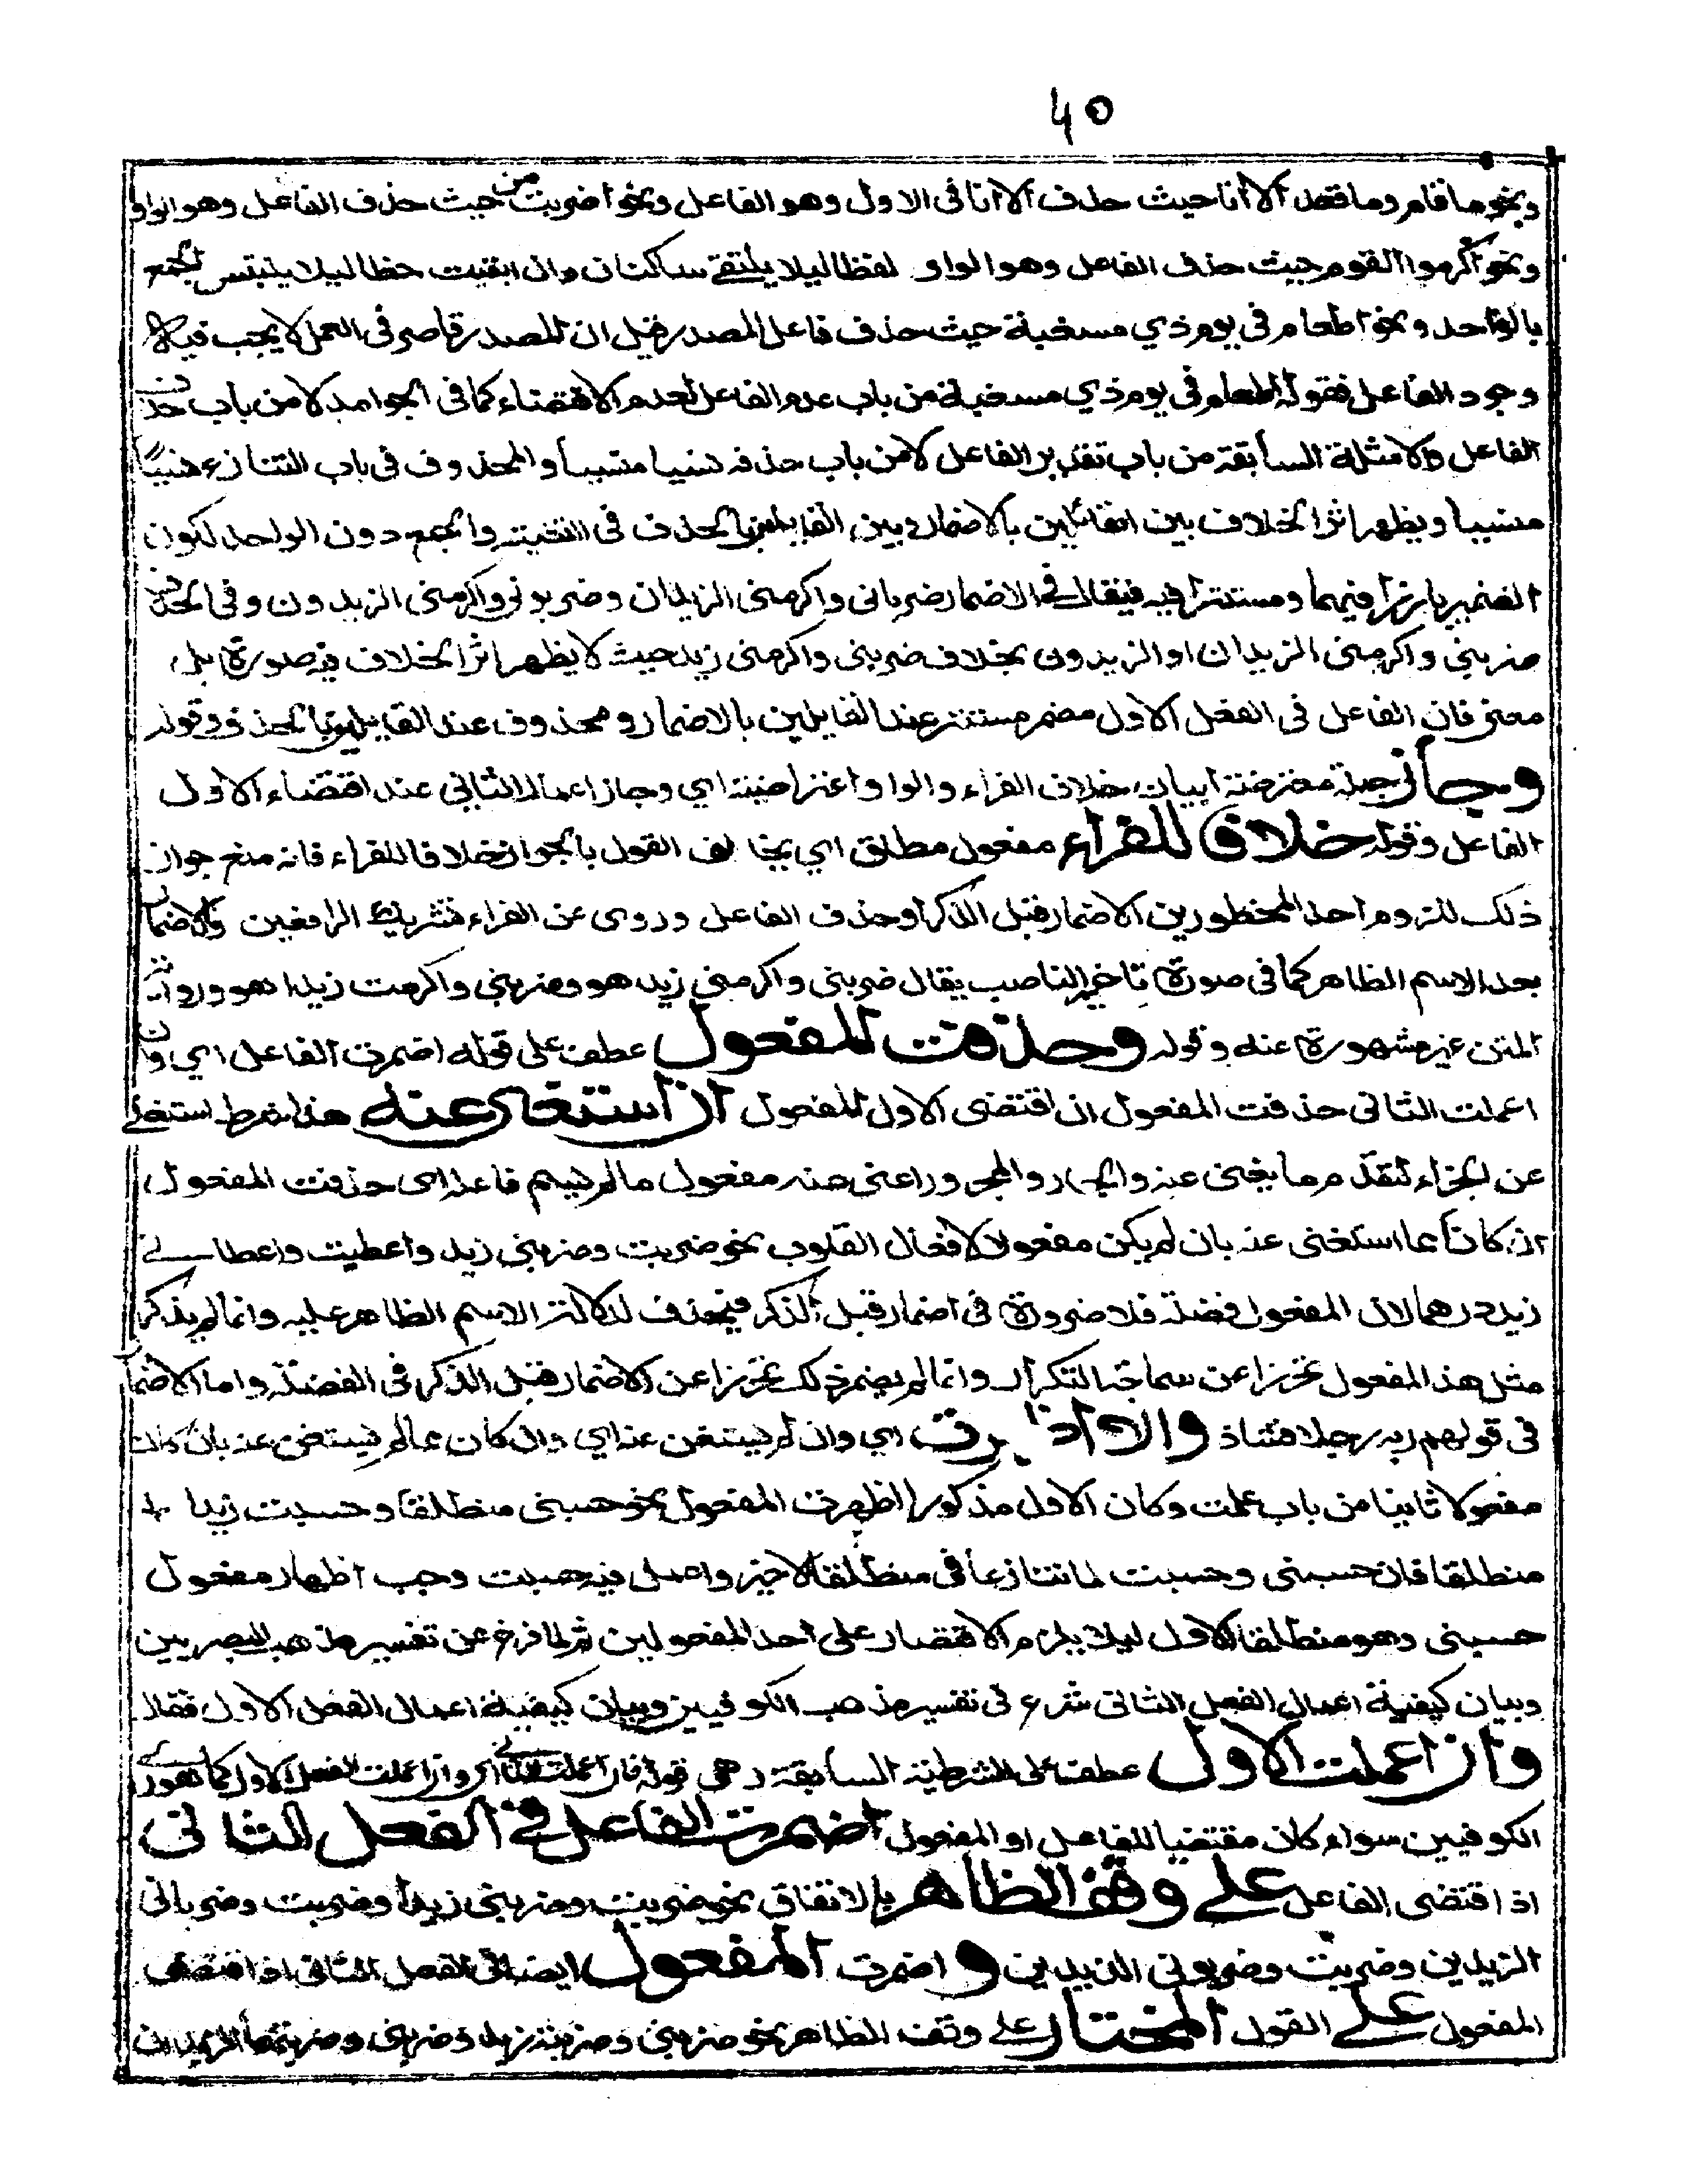 40
ونحو ما قام وما قعد الا انا حيث حذف الا انا فى الاول وهو الفاعل ونحو اضربت من حيث حذف الفاعل وهو الواو
ونحو اكرموا القوم حيث حذف الفاعل وهو الواو لفظا ليلا يلتقے ساكنان وان ابقيت خطا ليلا يلتبس الجمع
بالواحد ونحو اطعام فى يوم ذي مسغبة حيث حذف فاعل المصدر قيل ان المصدر قاصر فى العمل لا يجب فيه
وجود الفاعل فقوله اطعام فى يوم ذي مسغبة من باب عدم الفاعل لعدم الاقتضاء كما فى الجوامد لا من باب حذف
الفاعل والامثلة السابقة من باب تقدير الفاعل لا من باب حذفه نسيا منسيا والمحذوف فى باب التنازع نسيا
منسيا ويظهر اثر الخلاف بين القائلين بالاضمار وبين القايلين بالحذف فى التثنية والجمع دون الواحد لكون
الضمير بارزا فيهما ومستترا فيه فيقال فى الاضمار ضربانى واكرمنى الزيدان وضربونى واكرمنى الزيدون وفى الحذف
ضربنى واكرمنى الزيدان او الزيدون بخلاف ضربنى واكرمنى زيد حيث لا يظهر اثر الخلاف فيه صورة بل
معنى فان الفاعل فى الفعل الاول مضمر مستتر عند القايلين بالاضمار ومحذوف عند القايلين بالحذف وقوله
وجاز جملة معترضة لبيان خلاف الفراء والواو اعتراضية اي وجاز اعمال الثانى عند اقتضاء الاول
الفاعل وقوله خلافا للفراء مفعول مطلق اي يخالف القول بالجواز خلافا للفراء فانه منع جواز
ذلك للزوم احد المحظورين الاضمار قبل الذكر او حذف الفاعل وروى عن الفراء تشريك الرافعين والاضمار
بعد الاسم الظاهر كما فى صورة تاخير الناصب يقال ضربنى واكرمنى زيد هو وضربنى واكرمت زيدا هو ورواية
المتن غير مشهورة عنه وقوله وحذفت المفعول عطف على قوله اضمرت الفاعل اي وان
اعملت الثانى حذفت المفعول ان اقتضى الاول المفعول ان استغنى عنه هذا شرط استغنے
عن الجزاء لتقدم ما يغنى عنه والجار والمجرور اعنى عنه مفعول ما لم يسم فاعله اى حذفت المفعول
ان كان مما استغنى عنه بان لم يكن مفعولا لافعال القلوب نحو ضربت وضربنى زيد واعطيت واعطانے
زيد درهما لان المفعول فضلة فلا ضرورة فى اضمار قبل الذكر فيحذف لدلالة الاسم الظاهر عليه وانما لم يذكر
مثل هذا المفعول تحرزا عن سماجة التكرار وانما لم يضمر ذلك تحرزا عن الاضمار قبل الذكر فى الفضلة واما الاضمار
فى قولهم ربه رجلا فشاذ والا اظهرت اي وان لم يستغن عنه اي وان كان مما لم يستغن عنه بان كان
مفعولا ثانيا من باب علمت وكان الاول مذكورا اظهرت المفعول نحو حسبنى منطلقا وحسبت زيدا
منطلقا فان حسبنى وحسبت لما تنازعا فى منطلقا الاخير واعمل فيه حسبت وجب اظهار مفعول
حسبنى وهو منطلقا الاول ليلا يلزم الاقتصار على احد المفعولين ثم لما فرغ عن تفسير مذهب البصريين
وبيان كيفية اعمال الفعل الثانى شرع فى تفسير مذهب الكوفيين وبيان كيفية اعمال الفعل الاول فقال
وان اعملت الاول عطف على الشرطية السابقة وهى قوله فان اعملت الثانى اي وان اعملت الفعل الاول كما هو راى
الكوفيين سواء كان مقتضيا للفاعل او المفعول اضمرت الفاعل فے الفعل الثانى
اذ اقتضى الفاعل علے وفق الظاهر بالاتفاق نحو ضربت وضربنى زيدا وضربت وضربانى
الزيدين وضربت وضربونى الزيدين و اضمرت المفعول ايضا فى الفعل الثانى اذ اقتضى
المفعول علے القول المختار علے وفق الظاهر نحو ضربنى وضربته زيد وضربنى وضربتهما الزيدان